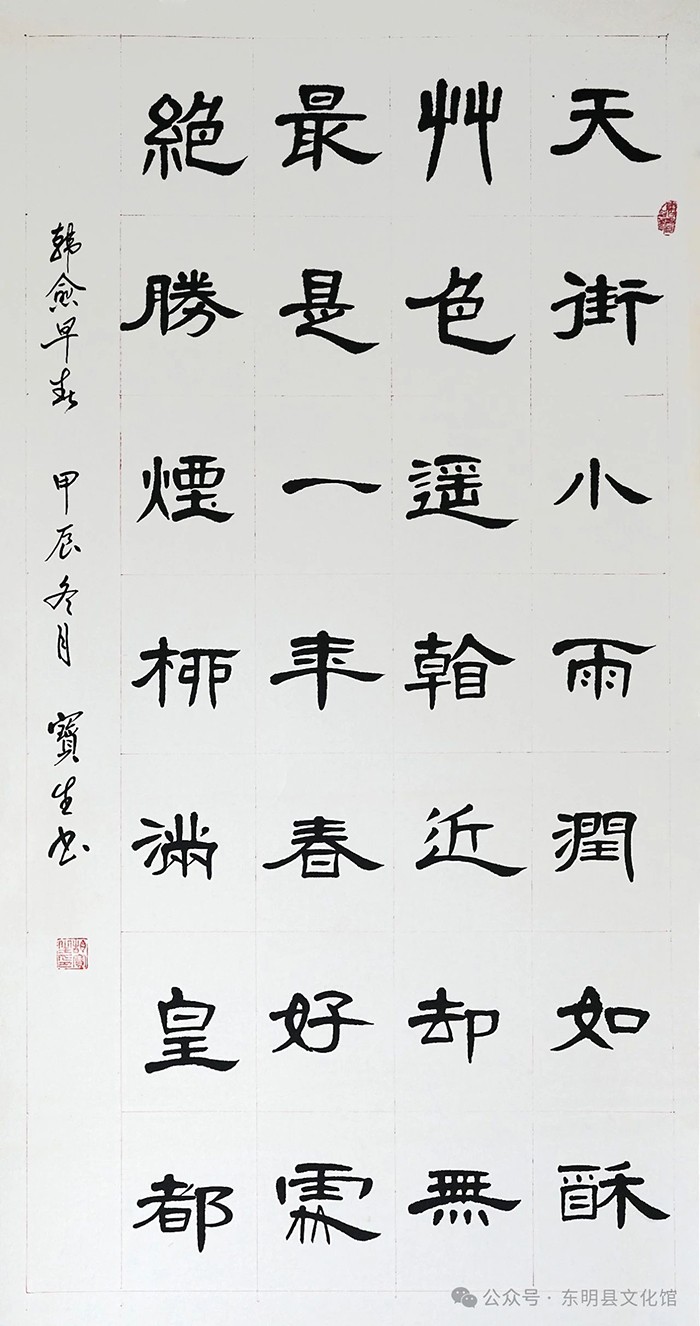 天街小雨潤如酥
艸色遥看近却無
最是一年春好處
絶勝煙柳滿皇都
韩愈早春 甲辰冬月 寶生书
公众号 · 东明县文化馆